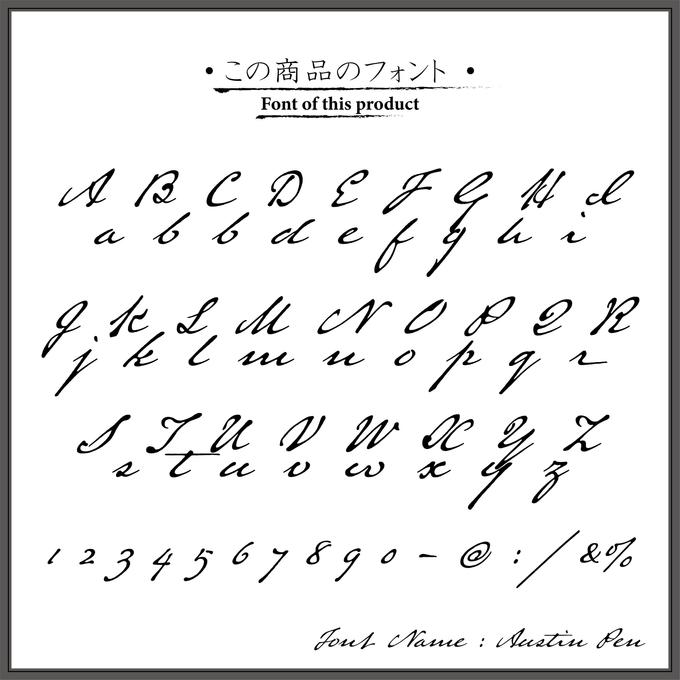 • この商品のフォント •
Font of this product
A B C D E F G H I
a b b d e f g h i
J K L M N O P Q R
j k l m n o p q r
S T U V W X Y Z
s t u v w x y z
1 2 3 4 5 6 7 8 9 0 - @ : / &%
Font Name : Austin Pen